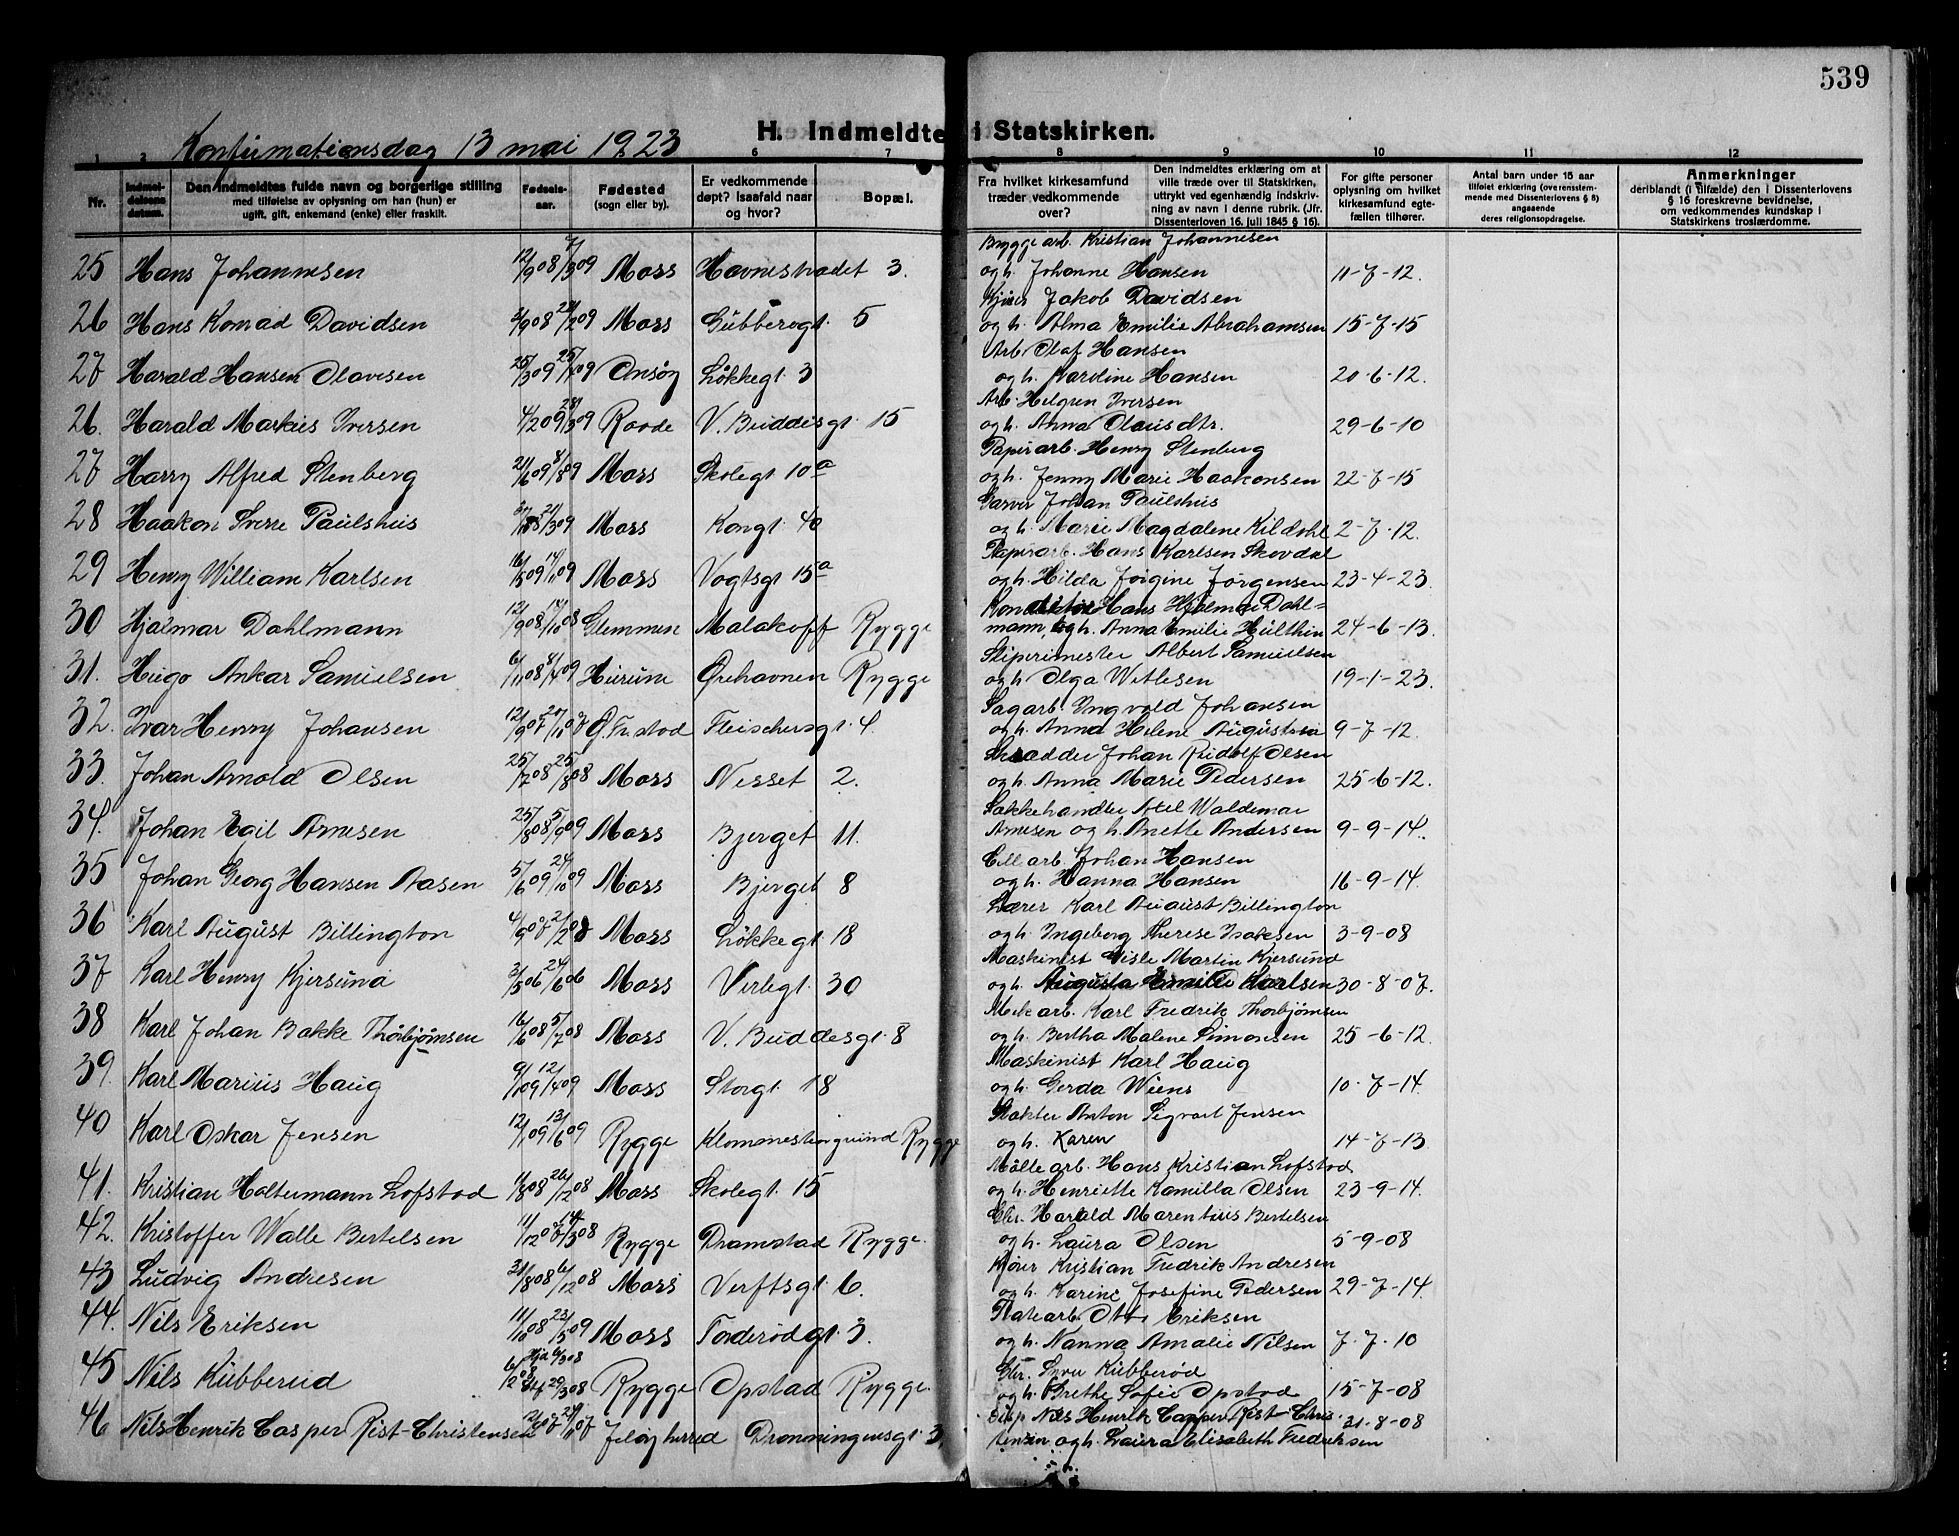 539
H. Indmeldte i Statskirken.
Konfirmationsdag 13 mai 1923
1 2 6 7 8 9 10 11 12
Nr.
Indmeldelsens datum.
Den indmeldtes fulde navn og borgerlige stilling
med tilføielse av oplysning om han (hun) er
ugift, gift, enkemand (enke) eller fraskilt.
Fødselsaar.
Fødested
(sogn eller by).
Er vedkommende
døpt? Isaafald naar
og hvor?
Bopæl.
Fra hvilket kirkesamfund
træder vedkommende
over?
Den indmeldtes erklæring om at
ville træde over til Statskirken,
uttrykt ved egenhændig indskrivning
av navn i denne rubrik. (Jfr.
Dissenterloven 16. juli 1845 § 16).
For gifte personer
oplysning om hvilket
kirkesamfund egtefællen
tilhører.
Antal barn under 15 aar
tilføiet erklæring (overensstemmende
med Dissenterlovens § 8)
angaaende
deres religionsopdragelse.
Anmerkninger
deriblandt (i tilfælde) den i Dissenterlovens
§ 16 foreskrevne bevidnelse,
om vedkommendes kundskap i
Statskirkens troslærdomme.
Brygge arb. Kristian Johannesen
25 Hans Johannesen 12/9 08 /3 09 Moss Havnestrædet 3. og h. Johanne Hansen 11-7-12.
Kjører Jakob Davidsen
26 Hans Konrad Davidsen 3/9 08 /2 09 Moss Gubberogt. 5 og h. Alma Emilie Abrahamsen 15-7-15
Arb. Olaf Hansen
27 Harald Hansen Olavsen 25/3 09 Onsøy Løkkegt. 3 og h. Karoline Hansen 20-6-12.
Arb. Helgun Iversen
26. Harald Markus Iversen 4/2 09 28/3 09 Raade V. Buddesgt. 15 og h. Anna Olausdtr. 29-6-10
Papirarb. Henry Stenberg
27 Harry Alfred Stenberg 21/6 09 8/8 09 Moss Skolegt. 10a og h. Jenny Marie Haakonsen 22-7-15
Garver Johan Paulshus
28 Haakon Sverre Paulshus 21/3 09 Moss Kongt. 40 og h. Marie Magdalene Kildahl 2-7-12.
Papirarb. Hans Karlsen Skovdal
29 Henry William Karlsen 16/5 09 14/11 09 Moss Vogtsgt. 15a og h. Hilda Jørgine Jørgensen 23-4-23.
Konditor Hans Hjalmar Dahl=
30 Hjalmar Dahlmann 12/9 08 /10 08 Glemmen Malakoff Rygge mann, og h. Anna Emilie Hulthin 24-6-13.
Sliperimester Albert Samuelsen
31. Hugo Ankar Samuelsen 6/11 08 /4 09 Hurum Ørehavnen Rygge og h. Olga Wetlesen 19-1-23.
Sagarb. Yngvald Johansen
32. Ivar Henry Johansen 12/9 07 27/10 07 G. Fr.stad Fleischersgt. 4. og h. Anna Helene Augustsen 9-7-12.
Skrædder Johan Rudolf Olsen
33. Johan Arnold Olsen 25/7 08 25/8 08 Moss Nesset 2. og h. Anna Marie Pedersen 25-6-12.
Sakkehandler Axel Waldemar
34. Johan Egil Arnesen 25/8 08 5/9 09 Moss Bjerget 11. Arnesen og h. Anette Andersen 9-9-14.
Cell arb. Johan Hansen
35 Johan Georg Hansen Aasen 5/6 09 24/10 09 Moss Bjerget 8 og h. Hanna Hansen 16-9-14.
Lærer Karl August Billington
36 Karl August Billington 4/9 07 2/2 08 Moss Løkkegt. 18 og h. Ingeborg Therese Isaksen 3-9-08
Maskinist Gisle Martin Kjersund
37 Karl Henry Kjersund 3/5 06 24/6 06 Moss Verlegt. 30 og h. Augusta Emilie Karlsen 30-8-07.
Mek arb. Karl Fredrik Thorbjørnsen
38 Karl Johan Bakke Thorbjørnsen 16/6 08 5/7 08 Moss V. Buddesgt. 8 og h. Bertha Malene Simonsen 25-6-12.
Maskinist Karl Haug
39. Karl Marius Haug 9/1 09 12/4 09 Moss Storgt. 18 og h. Gerda Wiens 10-7-14.
Slakter Anton Sigvart Jensen
40 Karl Oskar Jensen 12/1 09 13/6 09 Rygge Klommestengrund Rygge og h. Karen 14-7-13
Mølle arb. Hans Kristian Lofstad
41. Kristian Holtermann Lofstad /8 08 26/12 08 Moss Skolegt. 15 og h. Henriette Kamilla Olsen 23-9-14.
Gbr. Harald Marentius Bertelsen
42. Kristoffer Walle Bertelsen 11/12 07 /3 08 Rygge Dramstad Rygge. og h. Laura Olsen 5-9-08
Kjører Kristian Fredrik Andresen
43 Ludvig Andresen 31/8 08 6/12 08 Moss Verftsgt. 6. og h. Karine Josefine Pedersen 29-7-14.
Platearb. Otto Eriksen
44. Nils Eriksen 11/10 08 23/5 09 Moss Torderødgt. 3. og h. Nanna Amalie Nilsen 7-7-10
Gbr. Syver Kubberød
45 Nils Kubberud 6/2 08 Hjd 6/3 08 29/3 08 Rygge Opstad Rygge. og h. Grethe Sofie Opstad 15-7-08
Disp Nils Henrik Casper Rist-Chris
46 Nils Henrik Casper Rist-Christensen 07 Jeløy herred Dronningensgt. 3. tensen og h. Laura Elisabeth Fredriksen 31-8-08